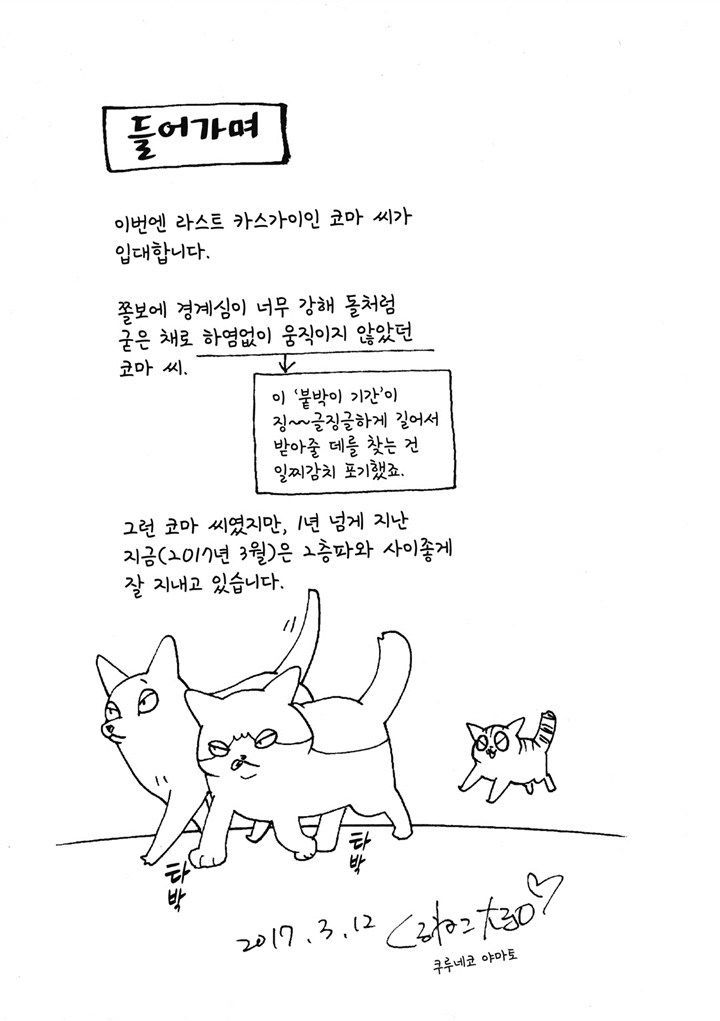 들어가며
이번엔 라스트 카스가이인 코마 씨가
입대합니다.
쫄보에 경계심이 너무 강해 돌처럼
굳은 채로 하염없이 움직이지 않았던
코마 씨.
이 '붙박이 기간'이
징~~글징글하게 길어서
받아줄 데를 찾는 건
일찌감치 포기했죠.
그런 코마 씨였지만, 1년 넘게 지난
지금(2017년 3월)은 2층파와 사이좋게
잘 지내고 있습니다.
타박
타박
2017.3.12
くるねこ大和
쿠루네코 야마토